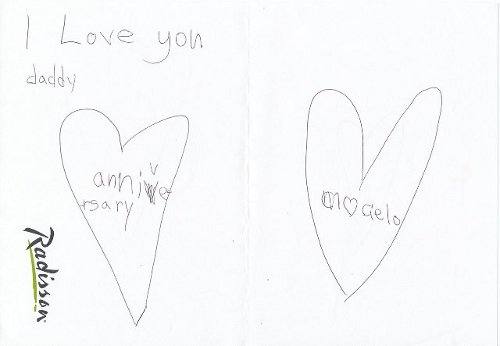 I Love you
daddy
annive
rsary
Radisson